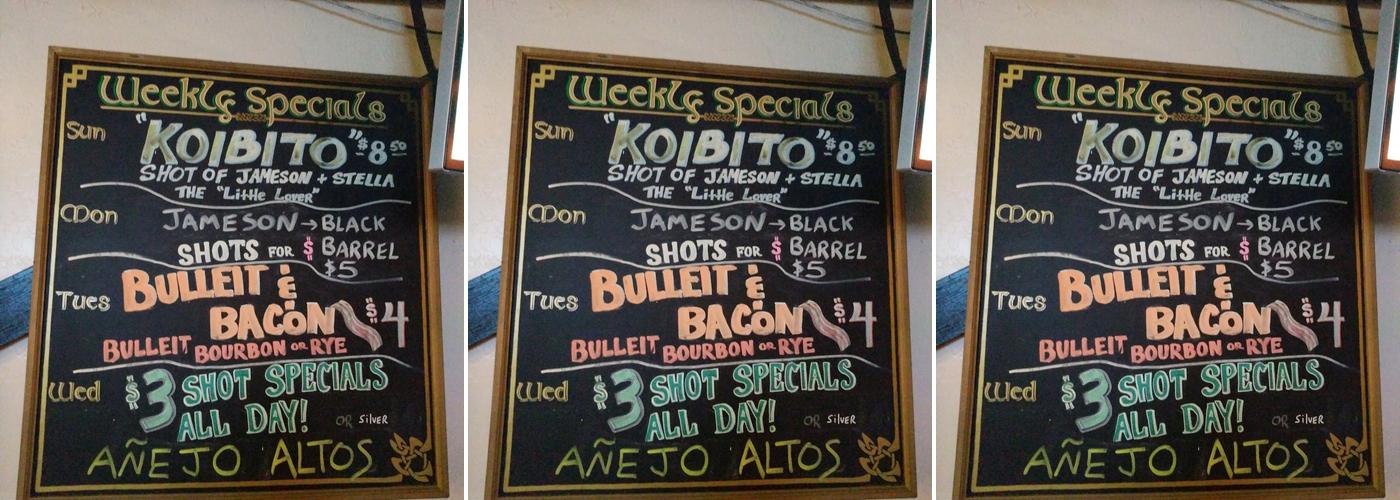 Weekly Specials
Sun "KOIBITO" - $8.50
SHOT OF JAMESON + STELLA
THE "Little Lover"
Mon JAMESON → BLACK
SHOTS FOR $ BARREL
$5
BULLEIT &
Tues BACON $4
BULLEIT BOURBON OR RYE
Wed $3 SHOT SPECIALS
ALL DAY!
OR SILVER
AÑEJO ALTOS
Weekly Specials
Sun "KOIBITO" - $8.50
SHOT OF JAMESON + STELLA
THE "Little Lover"
Mon JAMESON → BLACK
SHOTS FOR $ BARREL
$5
BULLEIT &
Tues BACON $4
BULLEIT BOURBON OR RYE
Wed $3 SHOT SPECIALS
ALL DAY!
OR SILVER
AÑEJO ALTOS
Weekly Specials
Sun "KOIBITO" - $8.50
SHOT OF JAMESON + STELLA
THE "Little Lover"
Mon JAMESON → BLACK
SHOTS FOR $ BARREL
$5
BULLEIT &
Tues BACON $4
BULLEIT BOURBON OR RYE
Wed $3 SHOT SPECIALS
ALL DAY!
OR SILVER
AÑEJO ALTOS